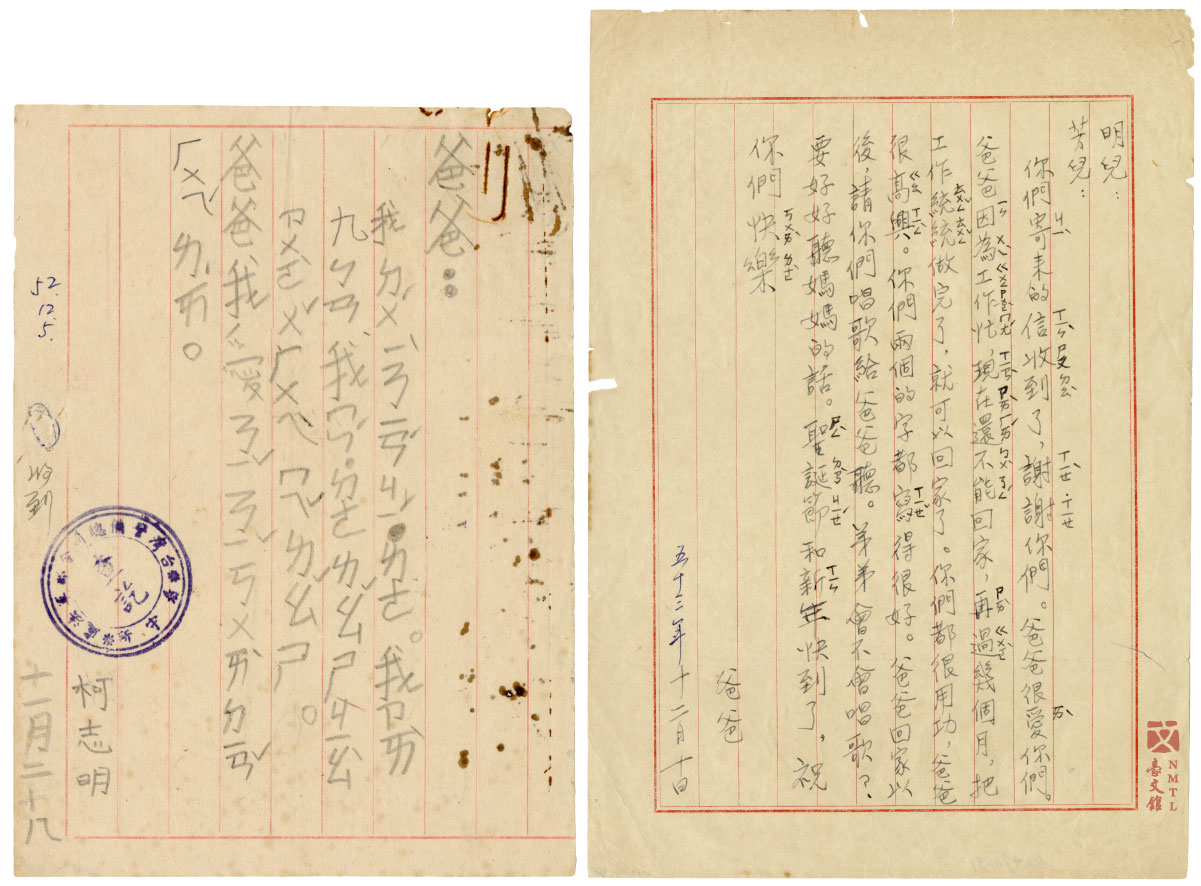 爸爸：
我ㄉㄨˊㄧˋㄋㄧㄢˊㄐㄧˊ˙ㄌㄜ。我ㄗㄞˋ
九ㄅㄢ我ㄇㄣˊ˙ㄉㄜㄌㄠˇㄕㄐㄧㄠ
ㄌㄠˇㄕ。
爸爸我ˇ愛ㄋㄧˇㄋㄧˇㄎㄨㄞˋㄉㄧㄢˇ
ㄏㄨㄟˊㄌㄞˊ。
柯志明
十一月二十八
52.
12.
5.
收到
明兒：
芳兒：
你們寄来的信收到了，謝謝你們。爸爸很愛你們。
爸爸因為工作忙，現在還不能回家，再過幾個月，把
工作統統做完了，就可以回家了。你們都很用功，爸爸
很高興。你們兩個的字都寫得很好。爸爸回家以
後，請你們唱歌給爸爸聽。弟弟會不會唱歌？
要好好聽媽媽的話。聖誕節和新年快到了，祝
你們快樂
爸爸
五十二年十二月十日
臺文館
NMTL